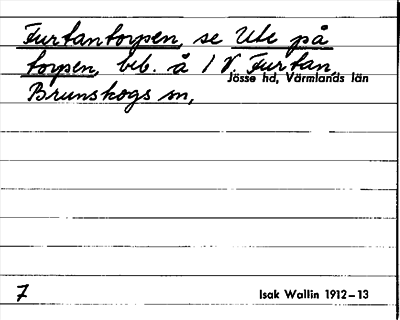 Furtantorpen, se Ute på
torpen, beb. å 1 V. Furtan
Jösse hd, Värmlands län
Brunskogs sn,
7
Isak Wallin 1912–13